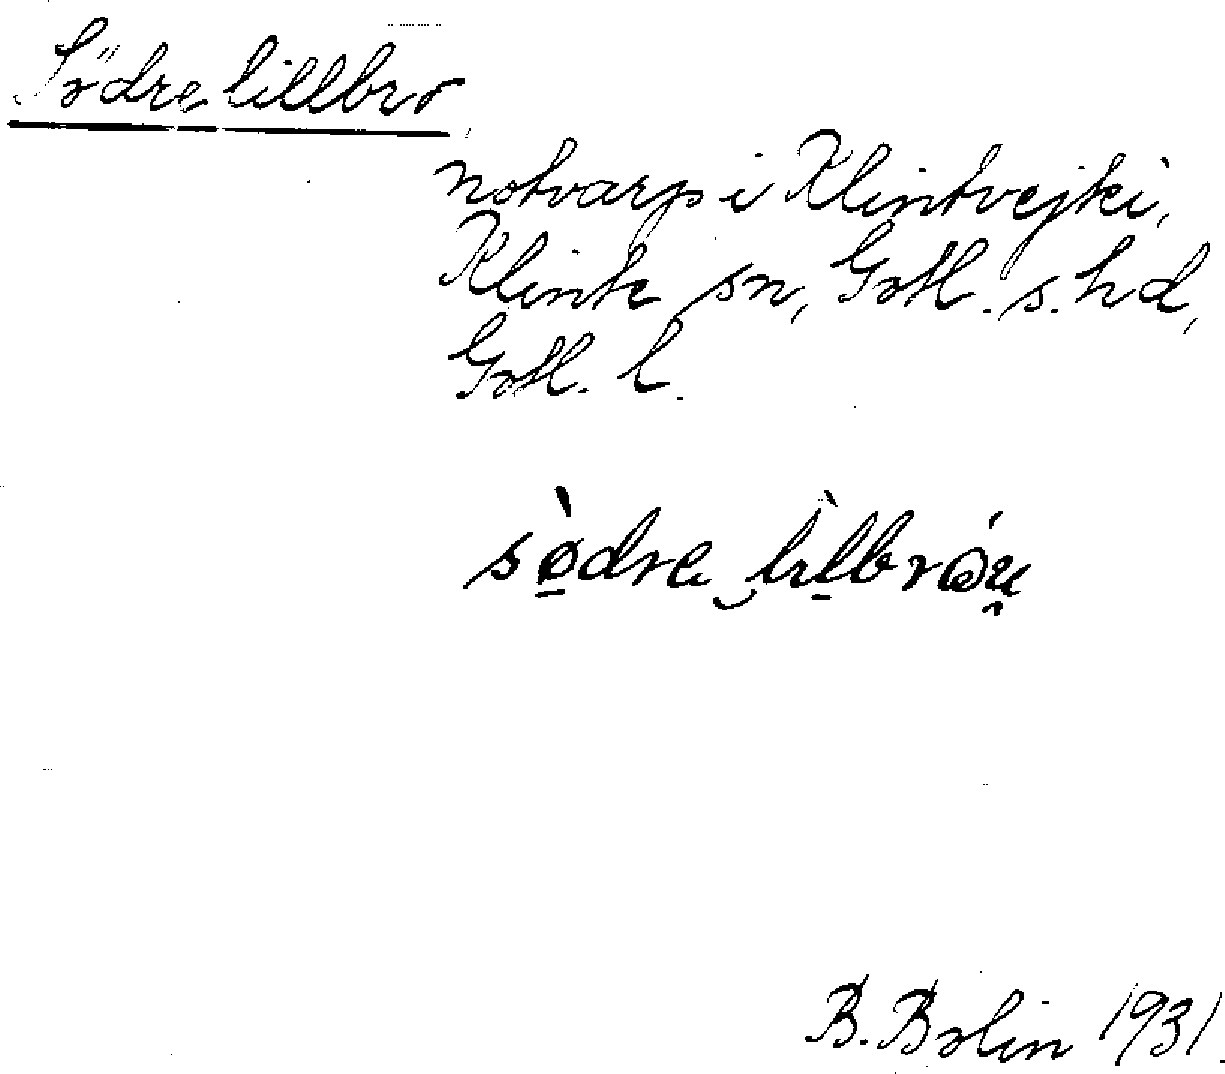 Södre lillbro
notvarp i Klintvejki,
Klinte sn, Gotl. s. hd,
Gotl. l.
sø̀dre lìlbróu̯
B. Bolin 1931.